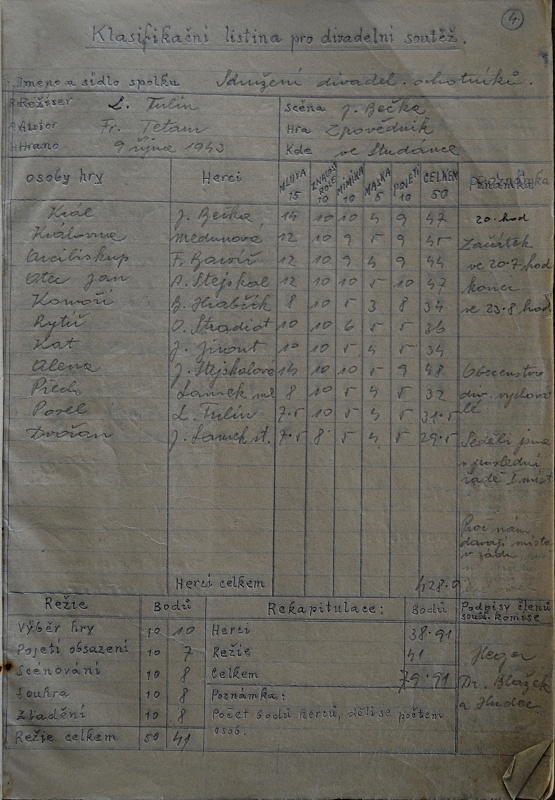 4.
Klasifikační listina pro divadelní soutěž.
Jméno a sídlo spolku Sdružení divadel. ochotníků.
Režiser L. Tulin Scéna J. Bečka
Autor Fr. Tetauer Hra Zpovědník
Hráno 9 října 1943 Kde ve Studánce
osoby hry Herci MLUVA 15 ZNALOST ROLE 10 MIMIKA 10 MASKA 5 POJETÍ 10 CELKEM 50 Poznámka
Král J. Bečka 14 10 10 4 9 47 20. hod
Královna Medunová 12 10 9 5 9 45 Začátek
Arcibiskup F. Bavíř 12 10 9 4 9 44 ve 20.7 hod
Otec Jan A. Stejskal 12 10 10 5 10 47 konec
Komoří B. Hrabčík 8 10 5 3 8 34 ve 23.8 hod
Rytíř O. Stradiot 10 10 6 5 5 36
Kat J. Jirout 10 10 5 4 5 34
Alena J. Stejskalová 14 10 10 5 9 48 Obecenstvo
Lamek ml 8 10 5 4 5 32
Pavel L. Tulin 7.5 10 5 4 5 31.5
Dvořan J. Lamek st. 7.5 8 5 4 5 29.5 Seděli jsme
v poslední
řadě I míst
Proč nám
dávají místa
v zadu
Herci celkem 428.0
Režie Bodů Rekapitulace: Bodů Podpisy členů
soud. komise
Výběr hry 10 10 Herci 38.91
Pojetí obsazení 10 7 Režie 41 Heger
Scénování 10 8 Celkem 79.91 Dr. Blažek
Souhra 10 8 Poznámka: a Hudec
Zladění 10 8 Počet bodů herců, dělí se počtem
osob.
Režie celkem 50 41